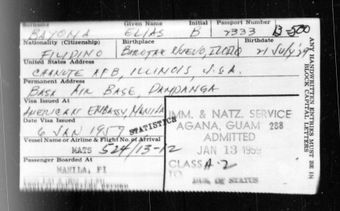 Given Name Initial Passport Number
BAYONA ELIAS B 2333 B-500
Nationality (Citizenship) Birthplace Birthdate
FILIPINO BAROTAC NUEVO, ILOILO 21 July
United States Address
CHANUTE AFB, ILLINOIS, U.S.A.
Permanent Address
BASA AIR BASE, PAMPANGA
Visa Issued At
AMERICAN EMBASSY, MANILA
Date Visa Issued
6 JAN 1959 STATISTICS
Vessel Name or Airline & Flight No. of Arrival
MATS 524/13-12
Passenger Boarded At
MANILA, PI
IMM. & NATZ. SERVICE
AGANA, GUAM 288
ADMITTED
JAN 13 1959
CLASS A-2
TO DUR. OF STATUS
ANY HANDWRITTEN ENTRIES MUST BE IN
BLOCK CAPITAL LETTERS